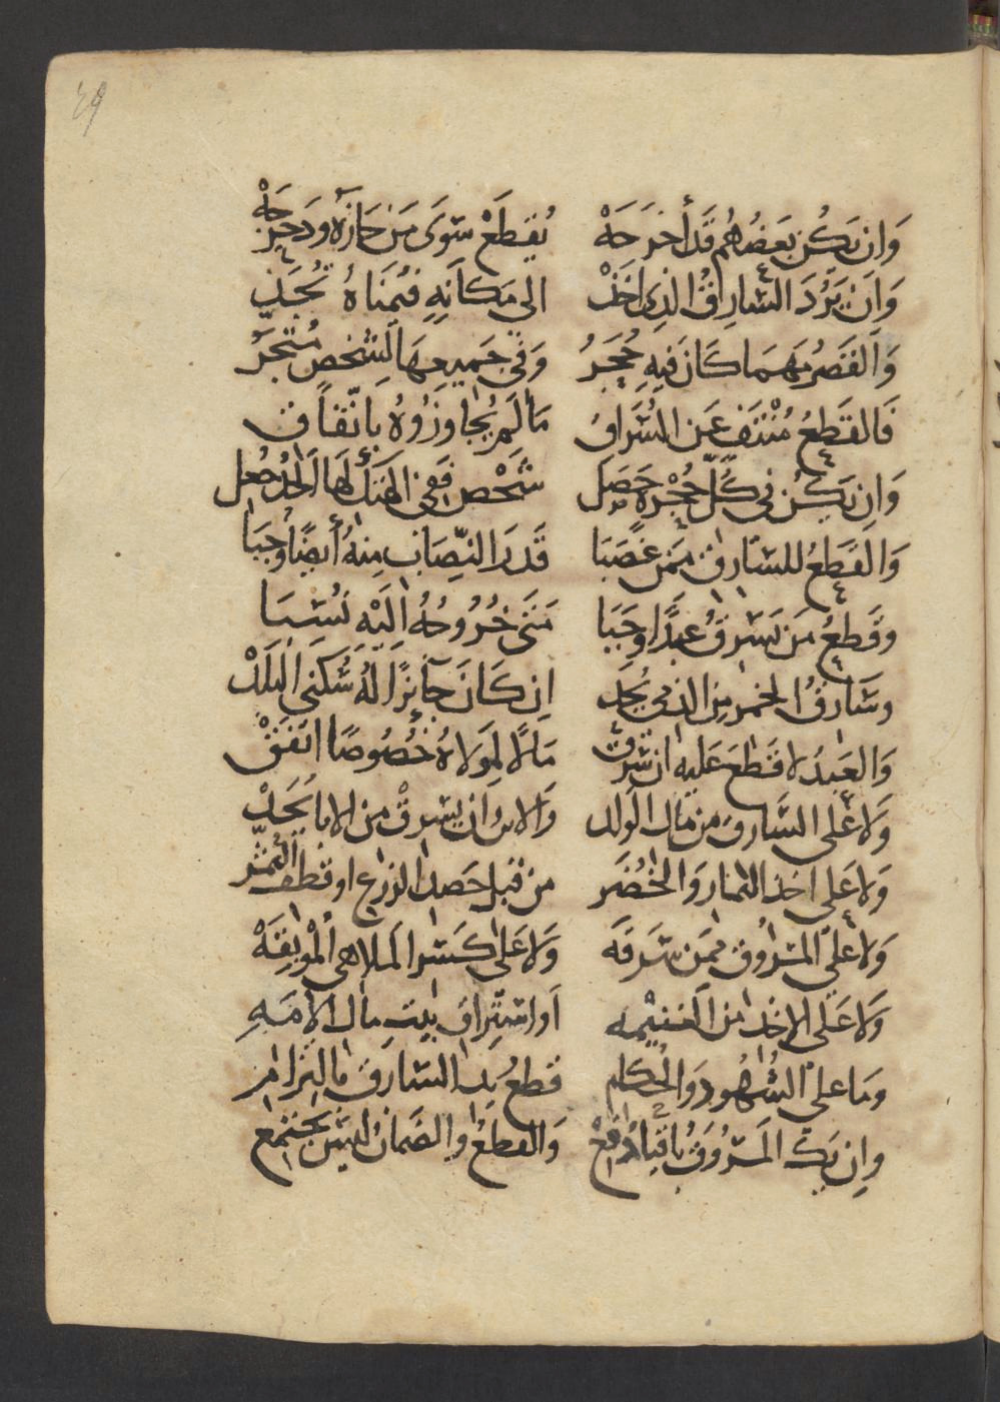 ٤٩
وَان يَكُن بَعضُهُم قَد أَخرَجَهْ يُقطَعْ سِوَى مَن حَازَهُ وَدَحرَجَهْ
وَان يَرُدَ السَّارِقُ الذى اخَذ الى مَكانَهِ فَمِنَاهُ نُجُبِذ
وَالقَصرُ مَهمَا كَانَ فيهِ حُجَرُ وَفى جَميعِهَا لِشخص مَتجَرُ
فَالقَطعُ مُنْتَفٍ عَن السُّرَاقِ مَا لَم يُجاوزُوهُ بِاتّفَاقِ
وَان يَكُن فى كُلّ حُجْرَه حَصَل شَخْص فَفى الهَتك لَهَا الحُرز جُعِل
وَالقَطعُ للسَّارق مِمَن غَصَبَا قَدرَ النِّصَاب مِنهُ أيضًا وَجَبَا
وَقَطعُ مَن يَسرقُ عَبدًا وَجَبَا مَتَى خُرُوجُهُ الَيْهِ نُسِبَا
وسَارقُ الخمر مِنَ الذمى يُحَد ان كَانَ جَائزًا لهُ سُكنى البَلَدْ
وَالعَبدُ لا قَطعَ عَليه ان سَرقْ مَالًا لِمَولاهُ خُصُوصًا اتفَقْ
وَلا عَلى السَّارق من مال الوَلد وَالابن ان يسرقْ من الابا يُحَدْ
وَلا عَلى اخذ الثمار وَالخُضَر من قبل حَصد الزرع او قطف الثمَر
وَلا عَلى المسرُوق ممَن سَرَقَه وَلا عَلى كَسر المَلاهى المُوْبِقَهْ
وَلا عَلى الاخذ من الغَنيْمه اَو استِرَاق بيت مال الامَهِ
وَما على الشُهُود وَالحُكام قطعُ يد السارق بالبزام
وان يَك المَسرُوقُ بَاقيًا دُفِعْ وَالقطعُ والضَمانُ ليسَ يَجتمع